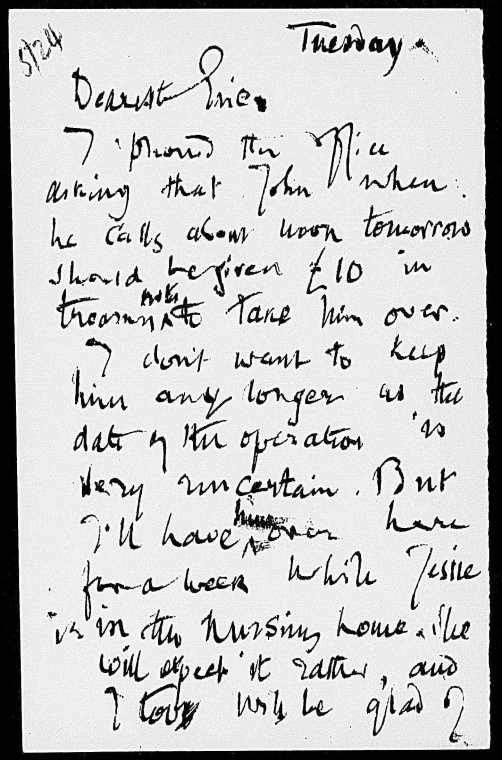 5/24
Tuesday.
Dearest Eric.
I 'phoned the Office
asking that John when
he calls about noon tomorrow
should be given £10 in
treasury notes to take him over.
I don't want to keep
him any longer as the
date of the operation is
very uncertain. But
I'll have him over here
for a week while Jessie
is in the nursing home. She
will expect it rather, and
I too will be glad of